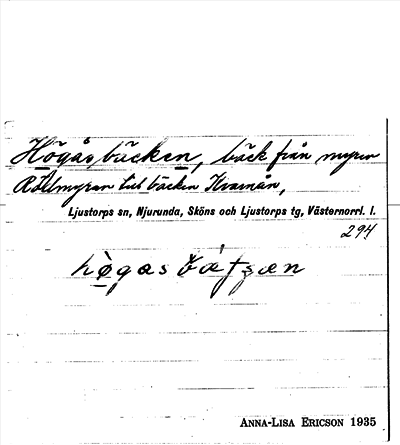 Högåsbäcken, bäck från myren
Rötmyran till bäcken Kvarnån,
Ljustorps sn, Njurunda, Sköns och Ljustorps tg, Västernorrl. l.
294
ANNA-LISA ERICSON 1935